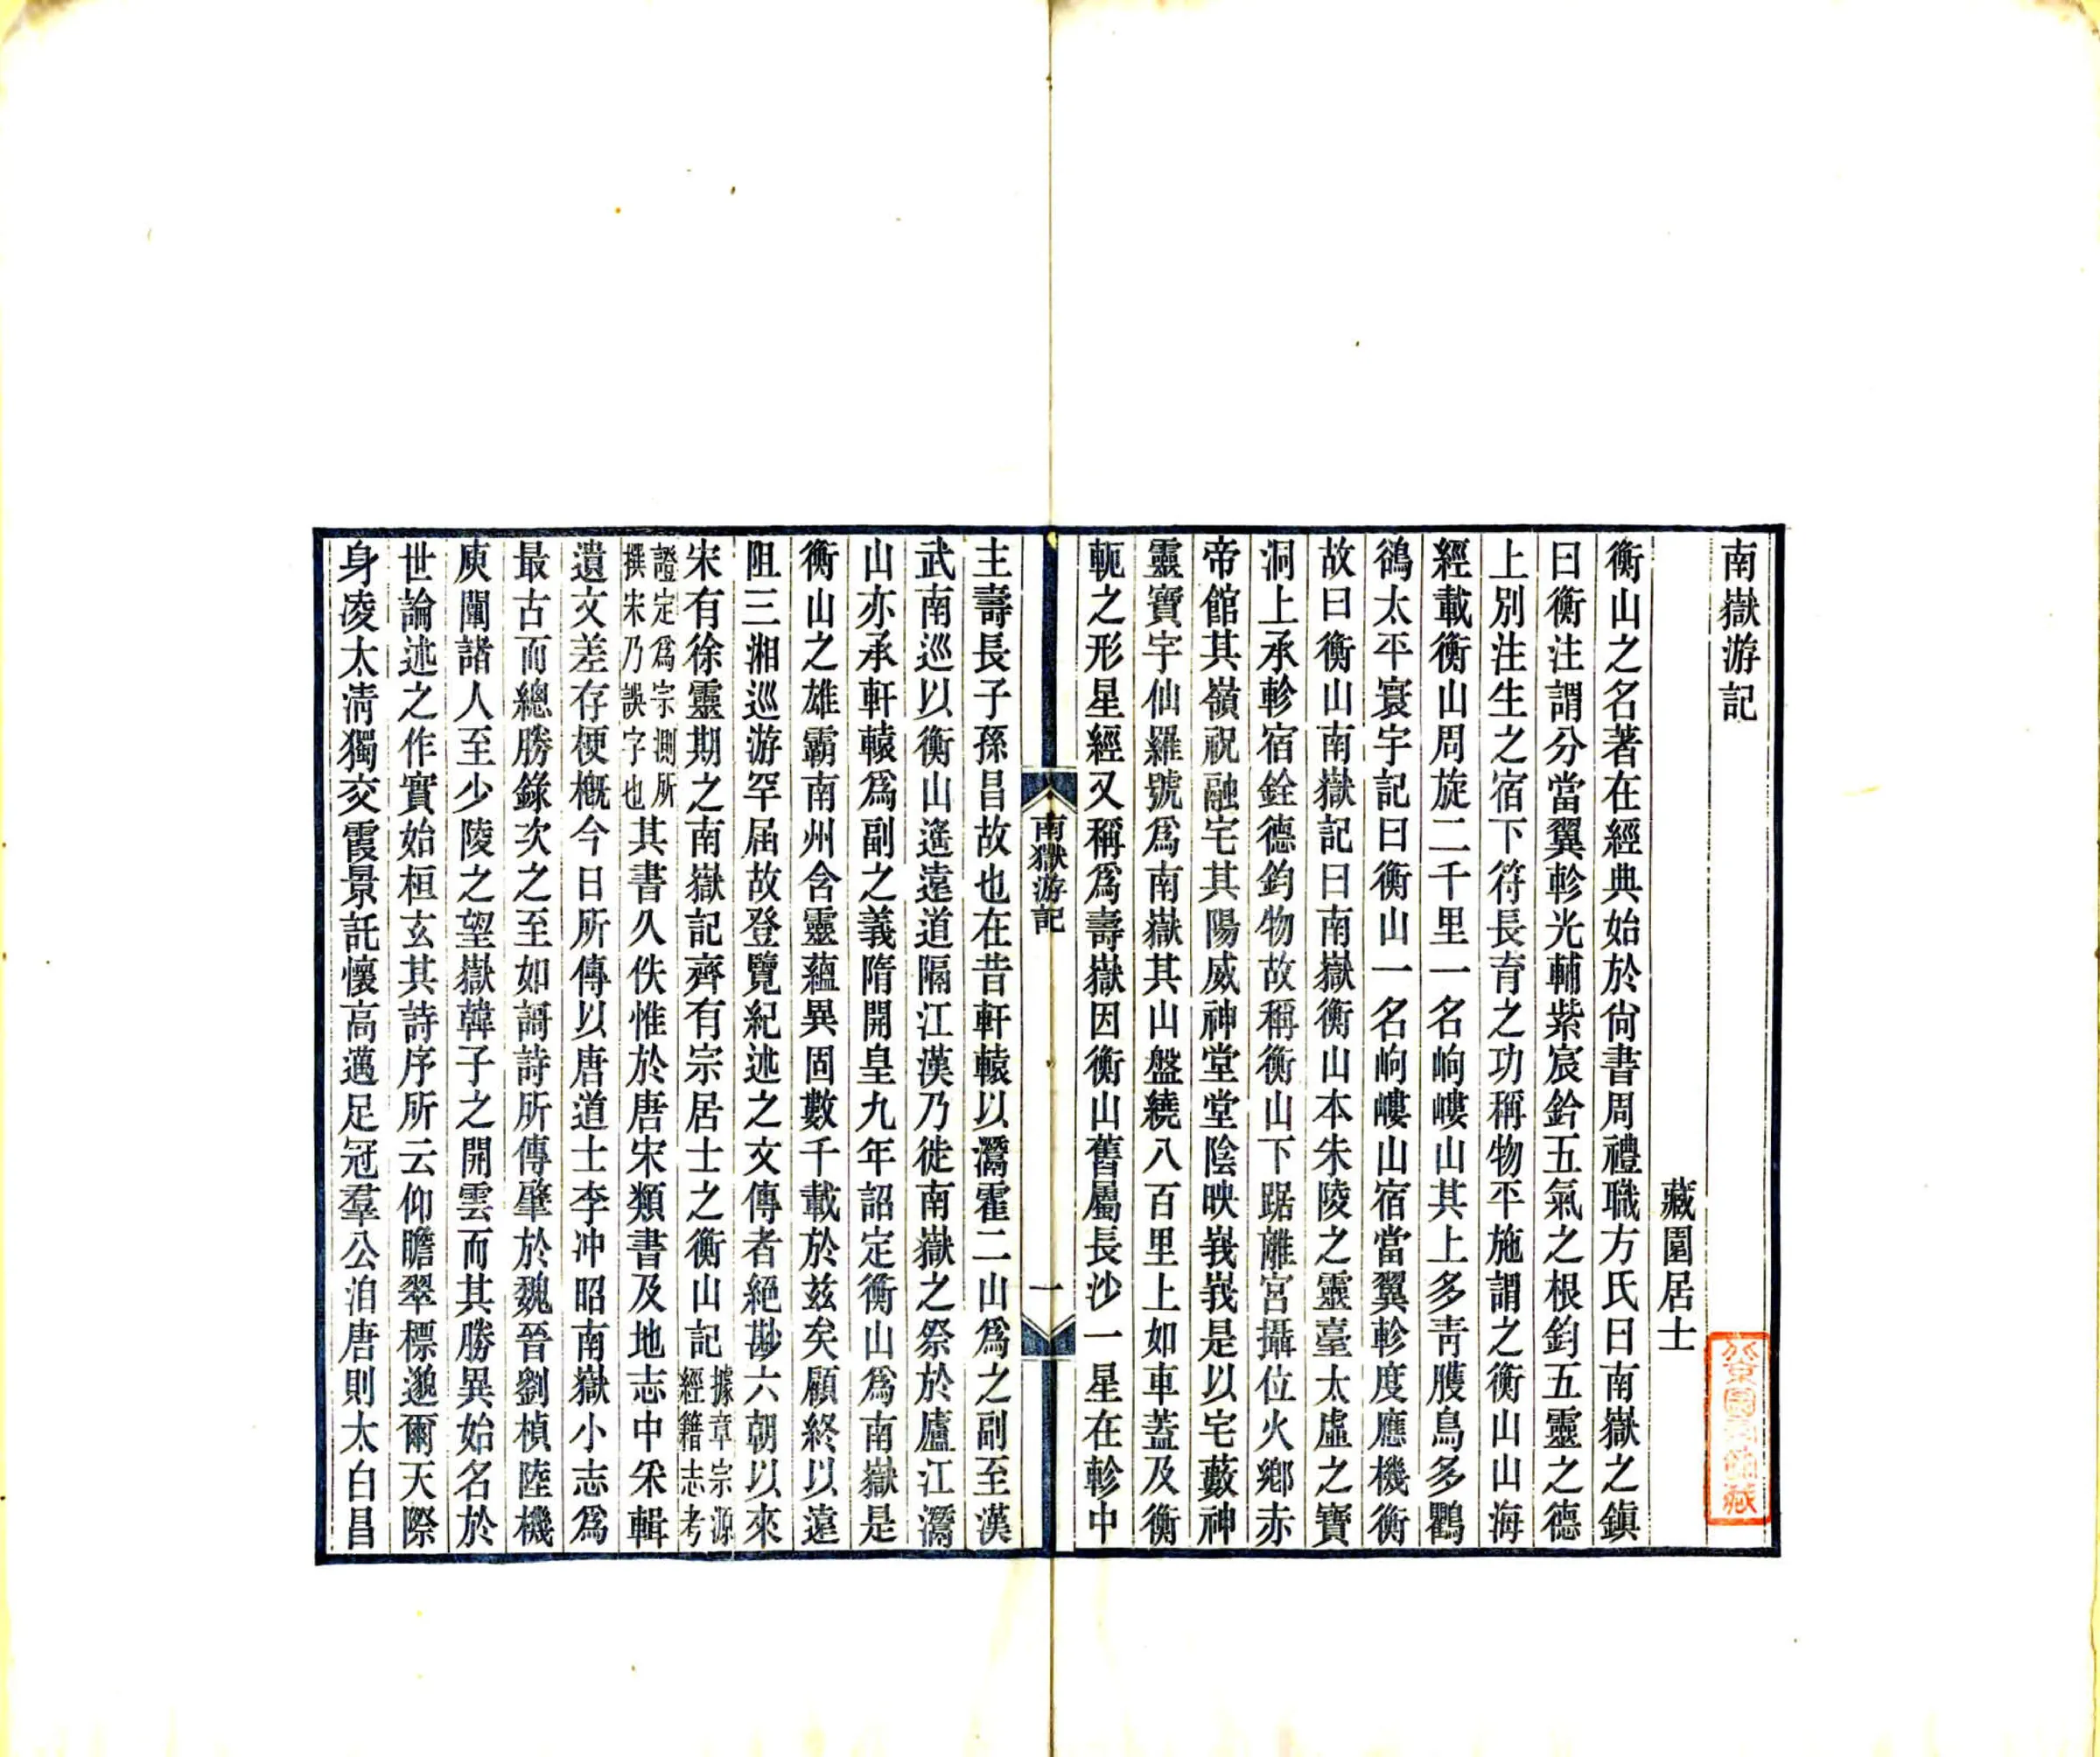 南嶽游記
藏園居士
衡山之名著在經典始於尙書周禮職方氏曰南嶽之鎭
曰衡注謂分當翼軫光輔紫宸鈐五氣之根鈞五靈之德
上別注生之宿下符長育之功稱物平施謂之衡山山海
經載衡山周旋二千里一名岣嶁山其上多靑雘鳥多鸜
鵒太平寰宇記曰衡山一名岣嶁山宿當翼軫度應機衡
故曰衡山南嶽記曰南嶽衡山本朱陵之靈臺太虛之寶
洞上承軫宿銓德鈞物故稱衡山下踞離宮攝位火鄕赤
帝館其嶺祝融宅其陽威神堂堂陰映峩峩是以宅藪神
靈寶宇仙羅號爲南嶽其山盤繞八百里上如車蓋及衡
軛之形星經又稱爲壽嶽因衡山舊屬長沙一星在軫中
南嶽游記
一
主壽長子孫昌故也在昔軒轅以灊霍二山爲之副至漢
武南巡以衡山遼遠道隔江漢乃徙南嶽之祭於廬江灊
山亦承軒轅爲副之義隋開皇九年詔定衡山爲南嶽是
衡山之雄霸南州含靈蘊異固數千載於兹矣顧終以遠
阻三湘巡游罕屆故登覽紀述之文傳者絕尠六朝以來
宋有徐靈期之南嶽記齊有宗居士之衡山記據章宗源經籍志考
證定爲宗測所撰宋乃誤字也其書久佚惟於唐宋類書及地志中釆輯
遺文差存梗槪今日所傳以唐道士李冲昭南嶽小志爲
最古而總勝錄次之至如謌詩所傳肇於魏晉劉楨陸機
庾闡諸人至少陵之望嶽韓子之開雲而其勝異始名於
世論述之作實始桓玄其詩序所云仰瞻翠標邈爾天際
身凌太淸獨交霞景託懷高邁足冠羣公洎唐則太白昌